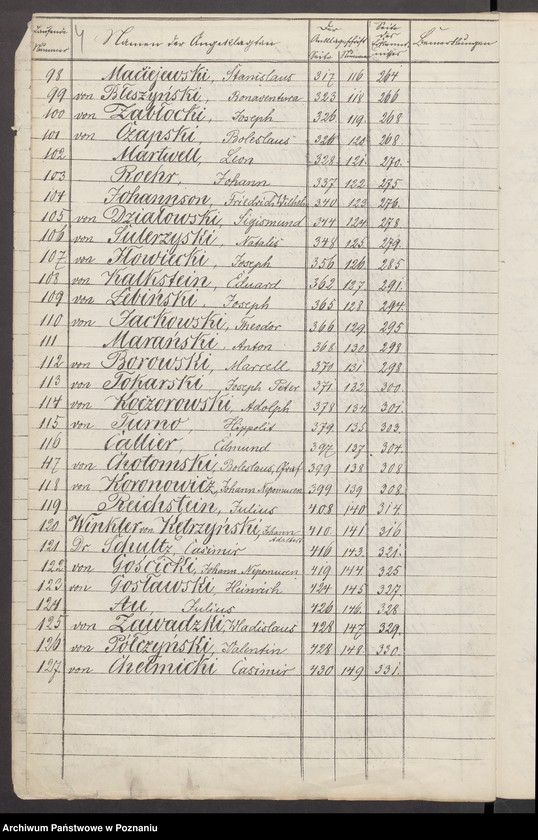 Laufende Nummer Namen der Angeklagten Der Anklageschrift Seite Nummer Seite des Bemerkungen
98 Maciejewski, Stanislaus 317 116 264
99 von Bleszyński, Bonaventura 323 118 266
100 von Zabłocki, Joseph 326 119 268
101 von Czapski, Boleslaus 326 120 268
102 Martwell, Leon 328 121 270
103 Roehr, Johann 337 122 275
104 Johannson, Friedrich Wilhelm 340 123 276
105 von Działowski, Sigismund 344 124 278
106 von Sulerzyski, Natalis 348 125 279
107 von Słowiecki, Joseph 356 126 285
108 von Kalkstein, Eduard 362 127 291
109 von Łebiński, Joseph 365 128 294
110 von Jackowski, Theodor 366 129 295
111 Marański, Anton 368 130 298
112 von Borowski, Marcell 370 131 298
113 von Tokarski, Joseph Peter 371 132 300
114 von Koczorowski, Adolph 378 134 301
115 von Turno, Hippolit 379 135 303
116 Callier, Edmund 397 137 304
117 von Chotomski, Boleslaus, Graf 399 138 308
118 von Koronowicz, Johann Nepomucen 399 139 308
119 Reichstein, Julius 408 140 314
120 Winkler von Kętrzyński, Johann Adalbert 410 141 316
121 Dr. Schultz, Casimir 416 143 321
122 von Gościcki, Johann Nepomucen 419 144 325
123 von Gostawski, Heinrich 424 145 327
124 Au, Julius 426 146 328
125 von Zawadzki, Wladislaus 428 147 329
126 von Półczyński, Valentin 428 148 330
127 von Chełmicki Casimir 430 149 331
Archiwum Państwowe w Poznaniu